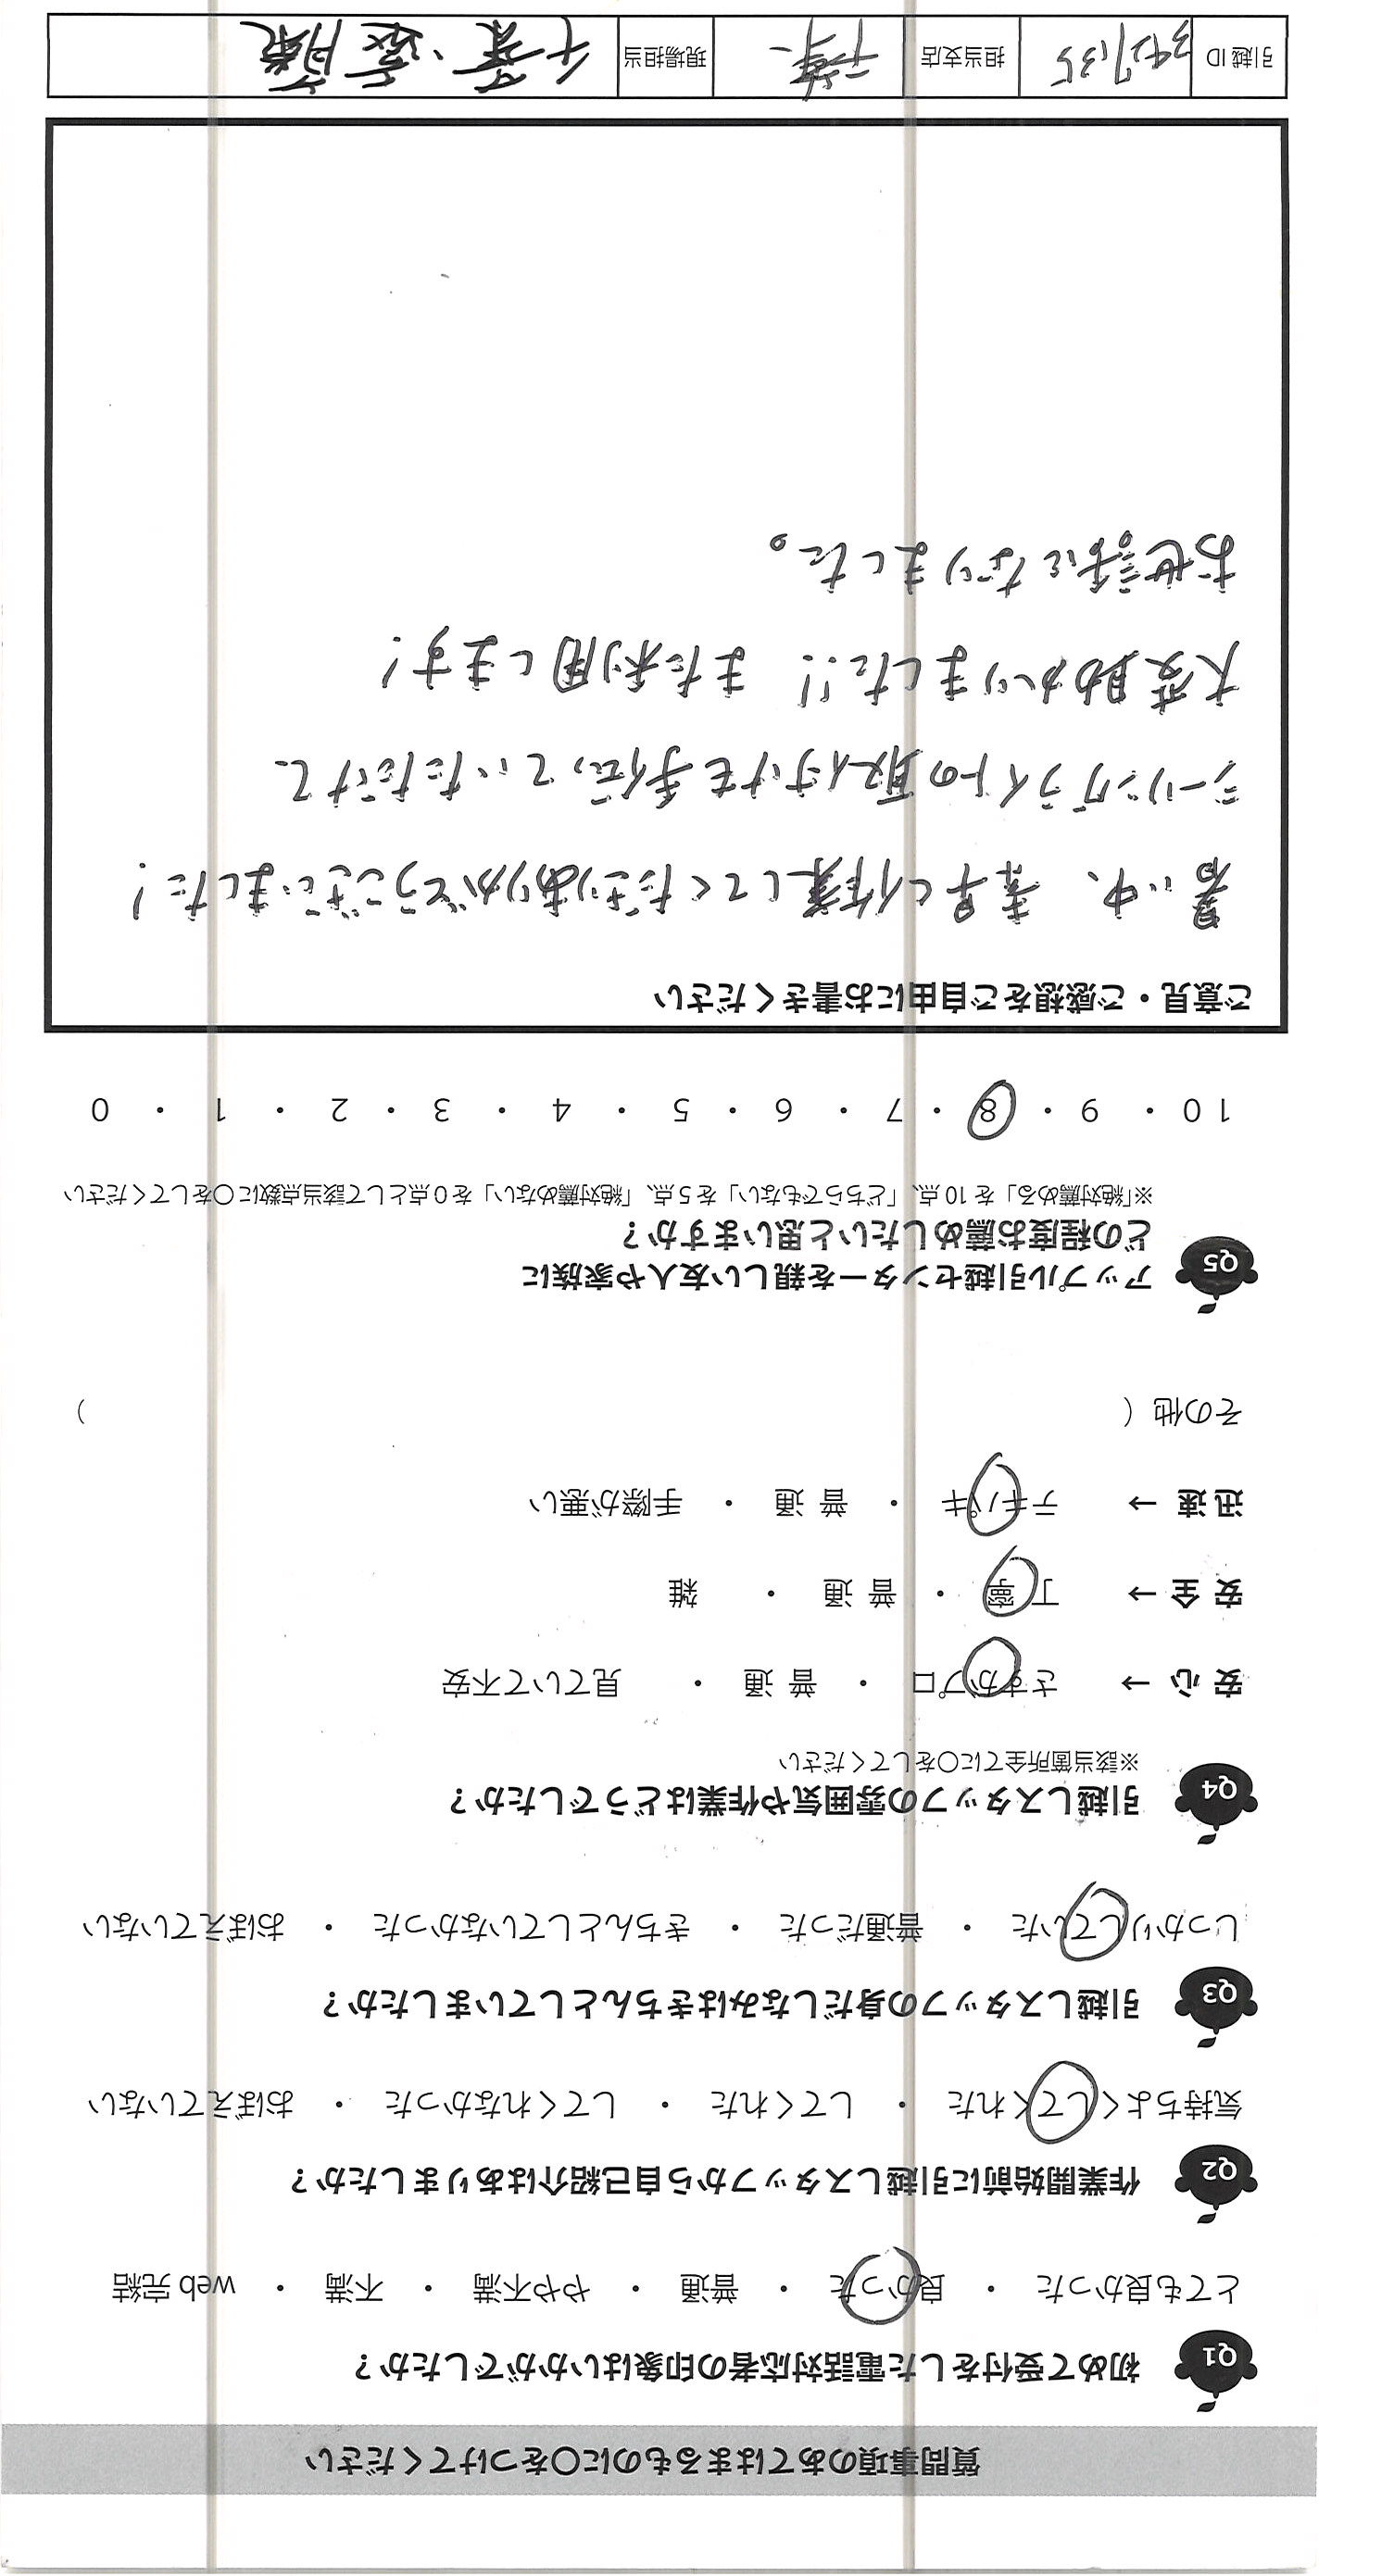 質問事項のあてはまるものに〇をつけてください
Q1 初めて受付をした電話対応者の印象はいかがでしたか？
とても良かった ・ 良かった ・ 普通 ・ やや不満 ・ 不満 ・ web 完結
Q2 作業開始前に引越しスタッフから自己紹介はありましたか？
気持ちよくしてくれた ・ してくれた ・ してくれなかった ・ おぼえていない
Q3 引越しスタッフの身だしなみはきちんとしていましたか？
しっかりしていた ・ 普通だった ・ きちんとしていなかった ・ おぼえていない
Q4 引越しスタッフの雰囲気や作業はどうでしたか？
※該当箇所全てに〇をしてください
安 心 → さすがプロ ・ 普 通 ・ 見ていて不安
安 全 → 丁 寧 ・ 普 通 ・ 雑
迅 速 → テキパキ ・ 普 通 ・ 手際が悪い
その他（ ）
Q5 アップル引越センターを親しい友人や家族に
どの程度お薦めしたいと思いますか？
※「絶対薦める」を 10 点、「どちらでもない」を 5 点、「絶対薦めない」を 0 点として該当点数に〇をしてください
10 ・ 9 ・ 8 ・ 7 ・ 6 ・ 5 ・ 4 ・ 3 ・ 2 ・ 1 ・ 0
ご意見・ご感想をご自由にお書きください
暑い中、素早く作業してくださりありがとうございました！
シーリングライトの取り付けも手伝っていただけて
大変助かりました!! また利用します！
お世話になりました。
引越 ID 3427135 担当支店 現場担当 千葉、斎藤